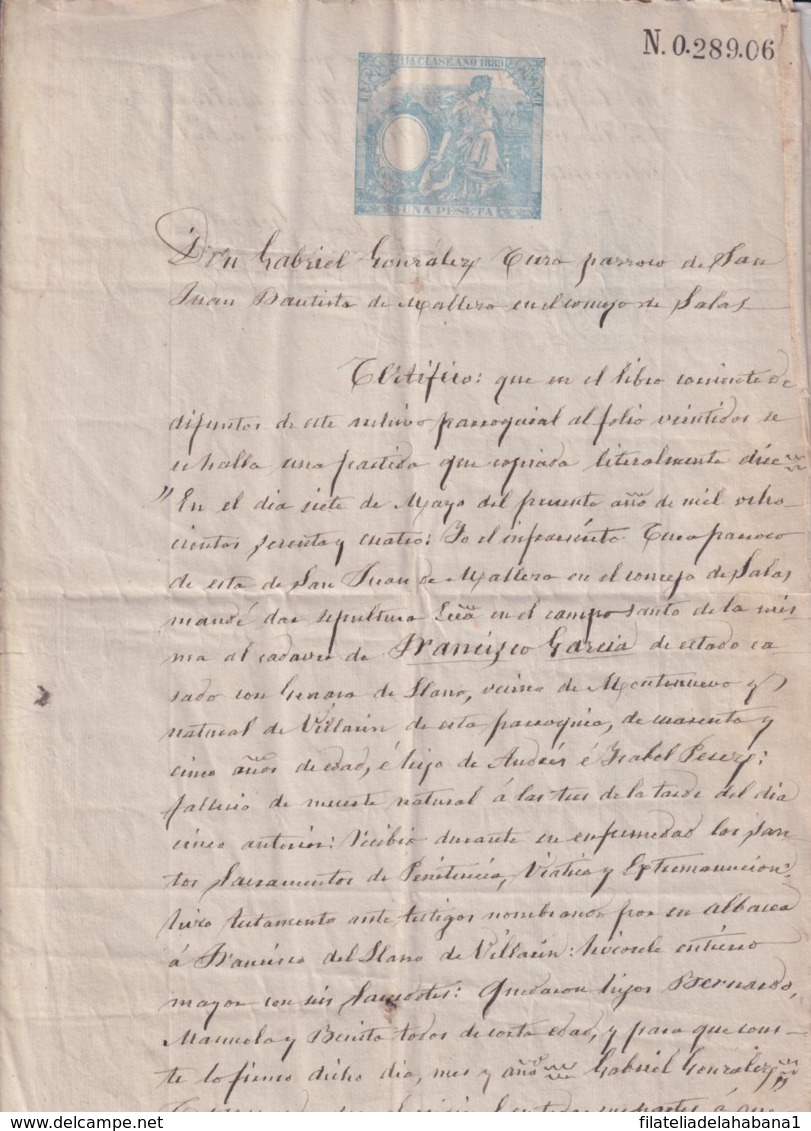 N.0.289.06
11ª CLASE AÑO 1889
UNA PESETA
Don Gabriel González Cura parroco de San
Juan Bautista de Mallera en el concejo de Salas
Certifico: que en el libro corriente de
difuntos de este archivo parroquial al folio veintidos se
halla una partida que copiada literalmente dice
"En el dia siete de Mayo del presente año de mil ocho
cientos setenta y cuatro: Yo el infrascrito Cura parroco
de esta de San Juan de Mallera en el concejo de Salas
mandé dar sepultura Ecca en el campo santo de la mis
ma al cadaver de Francisco Garcia de estado ca
sado con Genara de Llano, vecino de Montenuevo y
natural de Villarin de esta parroquia, de cuarenta y
cinco años de edad, é hijo de Andrés é Ysabel Perez;
fallecio de muerte natural á las tres de la tarde del dia
cinco anterior: Recibio durante su enfermedad los San
tos Sacramentos de Penitencia, Viatico y Extremauncion:
hizo testamento ante testigos nombrando por su albacea
á Francisco del Llano de Villarin: hicosele entierro
mayor con seis Sacerdotes: Quedaron hijos Bernardo,
Manuela y Benito todos de corta edad, y para que cons
te lo firmo dicho dia, mes y año Gabriel Gonzalez"
filateliadelahabana1
© delcampe.net